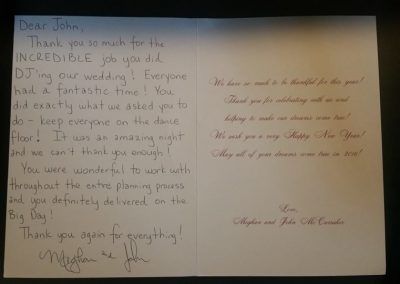 Dear John,
Thank you so much for the
INCREDIBLE job you did
DJ'ing our wedding! Everyone
had a fantastic time! You
did exactly what we asked you to
do - keep everyone on the dance
floor! It was an amazing night
and we can't thank you enough!
You were wonderful to work with
throughout the entire planning process
and you definitely delivered on the
Big Day!
Thank you again for everything!
Meghan and John
We have so much to be thankful for this year!
Thank you for celebrating with us and
helping to make our dreams come true!
We wish you a very Happy New Year!
May all of your dreams come true in 2016!
Love,
Meghan and John